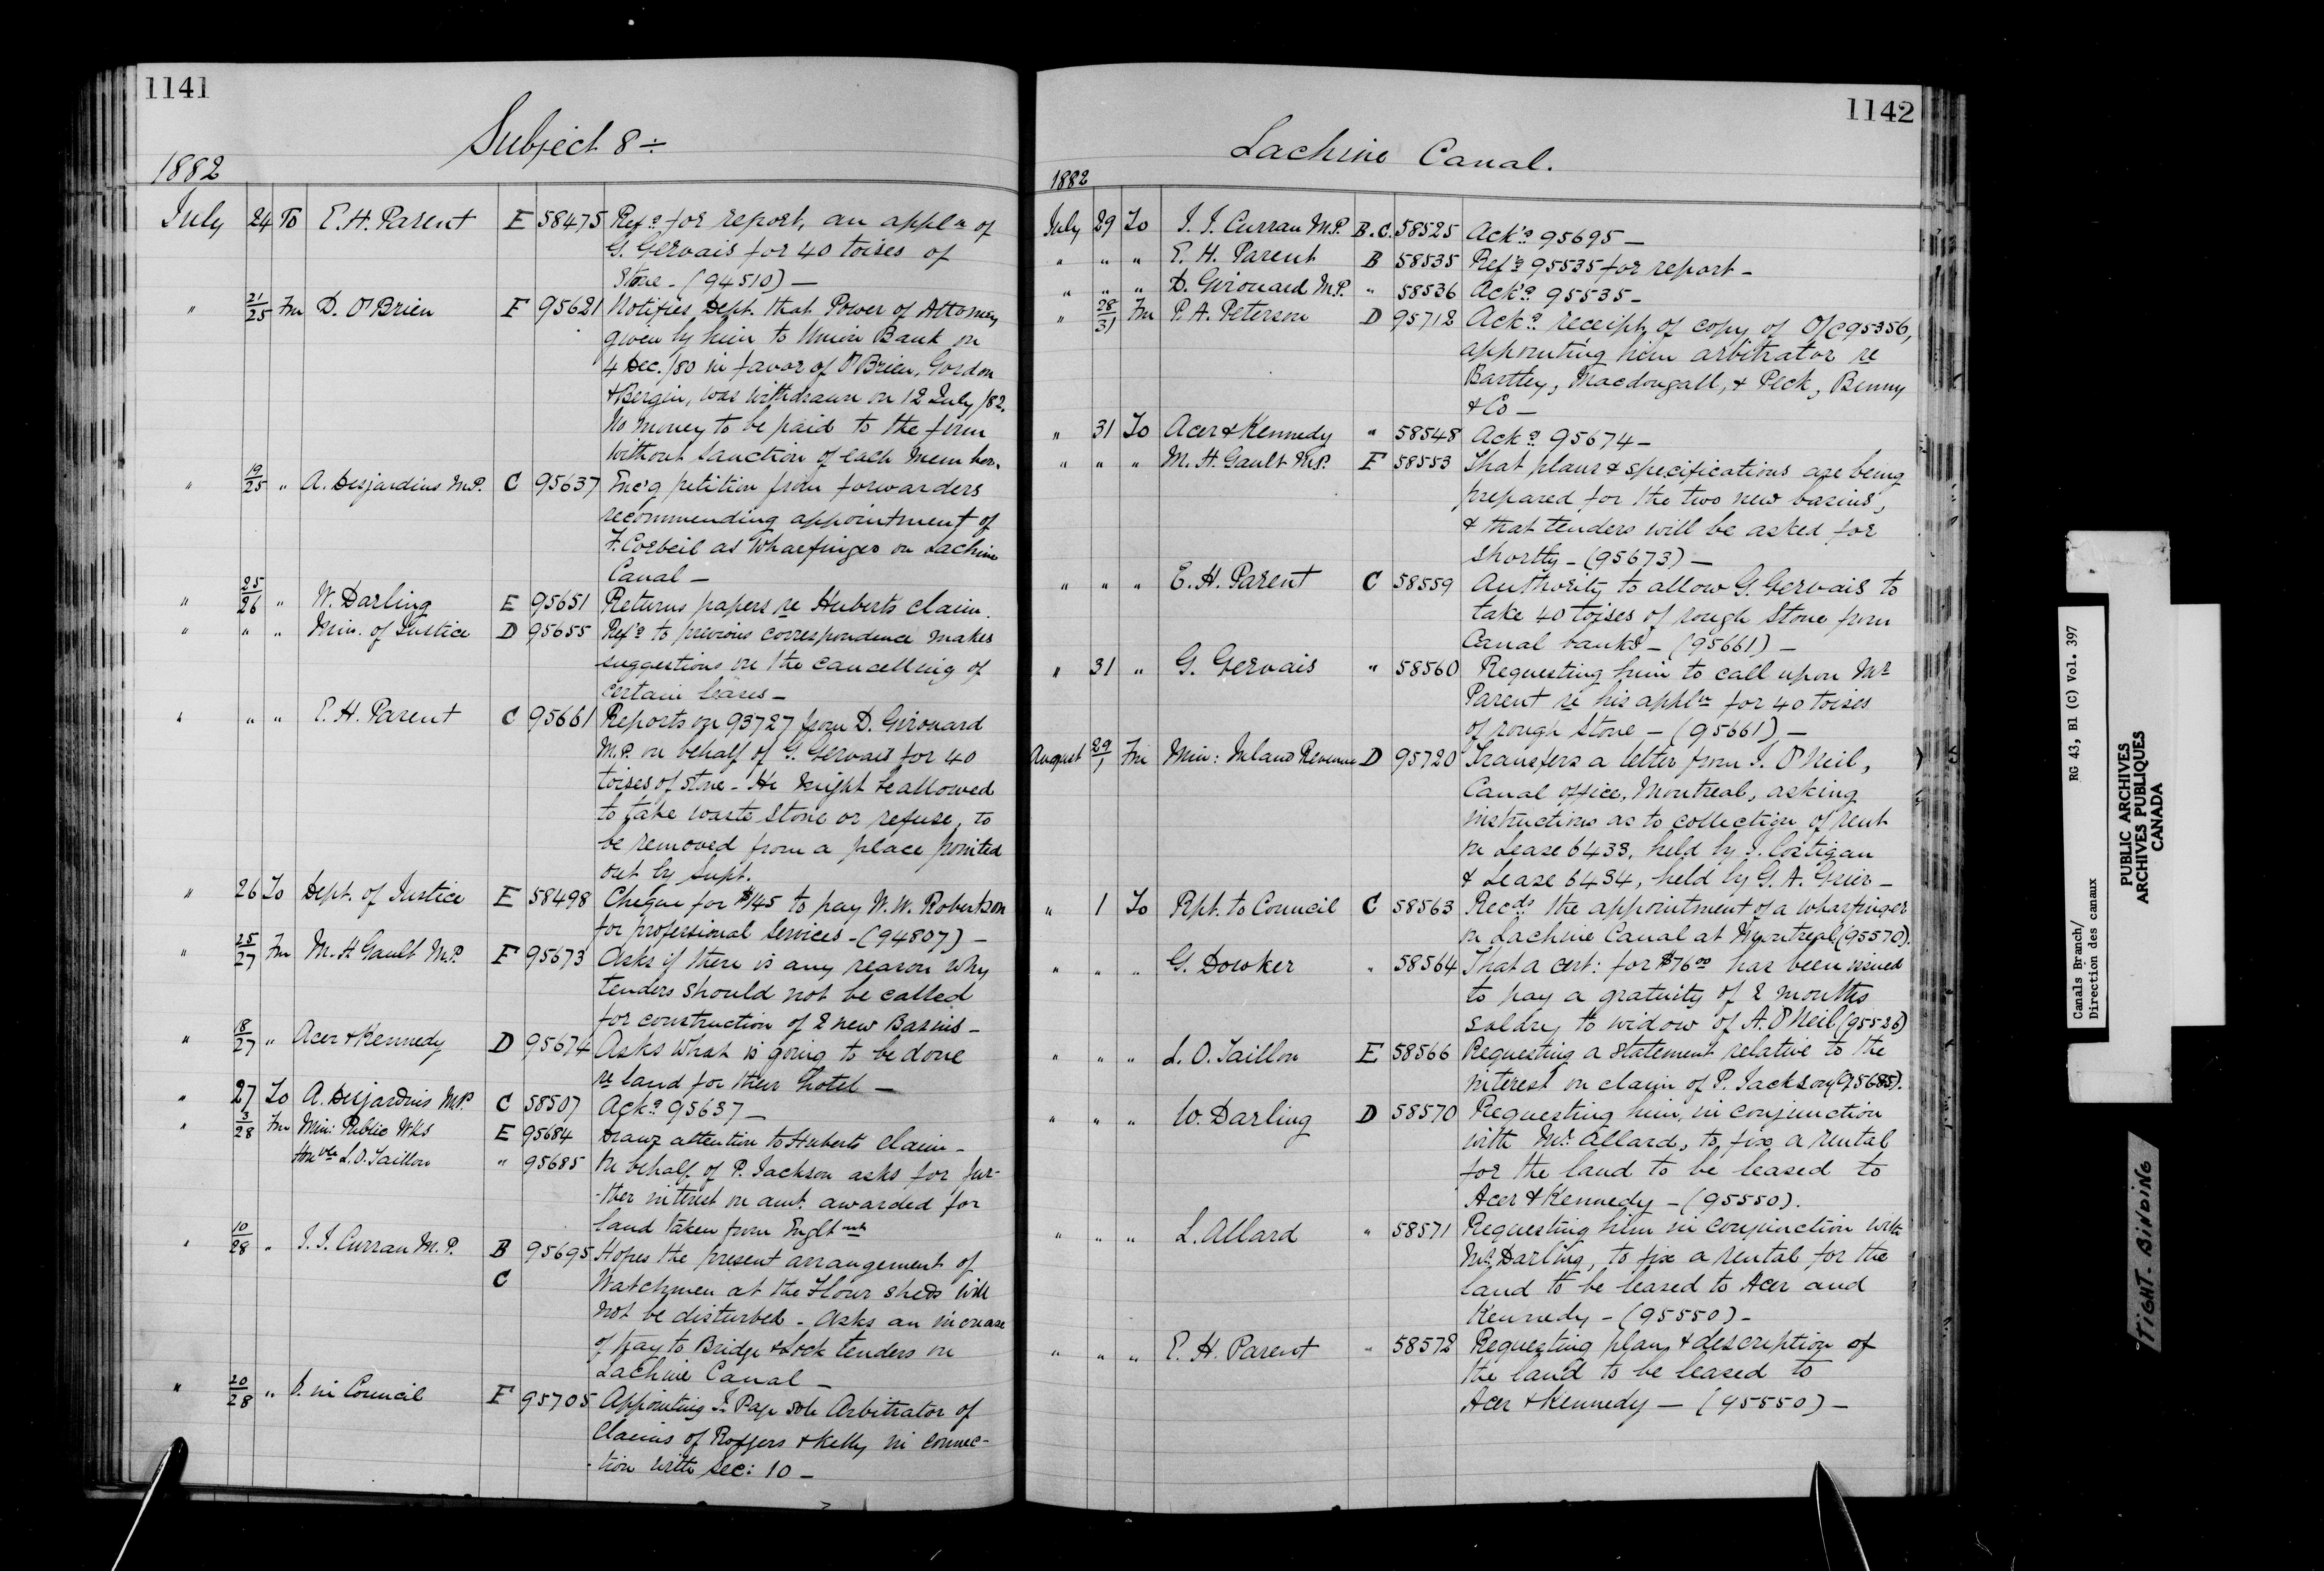 1141
Subject 8 ÷
1882
July 24 To E. H. Parent E 58475 Ref.g for report, an appln of
G. Gervais for 40 toises of
Stone - (94510) —
" 21/25 Fm D. O'Brien F 95621 Notifies Dept. that Power of Attorney
given by him to Union Bank on
4 Dec./80 in favor of O'Brien, Gordon
& Bergin, was withdrawn on 12 July /82.
No money to be paid to the firm
without sanction of each member.
" 19/25 " A. Desjardins M.P. C 95637 Enc'g petition from forwarders
recommending appointment of
F. Corbeil as Wharfinger on Lachine
Canal —
" 25/26 " W. Darling E 95651 Returns papers re Huberts claim.
" " " Min. of Justice D 95655 Ref'g to previous correspondence makes
suggestions on the cancelling of
certain leases —
" " " E. H. Parent C 95661 Reports on 93727 from D. Girouard
M.P. on behalf of G. Gervais for 40
toises of stone - He might be allowed
to take waste stone or refuse, to
be removed from a place pointed
out by Supt.
" 26 To Dept. of Justice E 58498 Cheque for $145 to pay W. W. Robertson
for professional services - (94807) —
" 25/27 Fm M. H. Gault M.P. F 95673 Asks if there is any reason why
tenders should not be called
for construction of 2 new Basins —
" 18/27 " Acer & Kennedy D 95674 Asks what is going to be done
re land for their hotel —
" 27 To A. Desjardins M.P. C 58507 Ack.g 95637 —
" 3/28 Fm Min: Public Wks E 95684 Draws attention to Huberts claim —
Honble L. O. Taillon " 95685 On behalf of P. Jackson asks for fur-
-ther interest on amt. awarded for
land taken from Englt
" 10/28 " J. J. Curran M.P. B 95695 Hopes the present arrangement of
C Watchmen at the Flour sheds will
not be disturbed - Asks an increase
of pay to Bridge & Lock tenders on
Lachine Canal —
" 20/28 " O. in Council F 95705 Appointing J. Page sole Arbitrator of
Claims of Rodgers & Kelly in connec-
-tion with Sec: 10 —
1142
Lachine Canal.
1882
July 29 To J. J. Curran M.P. B.C. 58525 Ack'g 95695 —
" " " E. H. Parent B 58535 Ref'g 95535 for report —
" " " D. Girouard M.P. " 58536 Ack'g 95535 —
" 28/31 Fm P. A. Peterson D 95712 Ack.g receipt of copy of O/C 95356,
appointing him arbitrator re
Bartley, Macdougall, & Peck, Benny
& Co —
" 31 To Acer & Kennedy " 58548 Ack.g 95674 —
" " " M. H. Gault M.P. F 58553 That plans & specifications are being
prepared for the two new basins,
& that tenders will be asked for
shortly - (95673) —
" " " E. H. Parent C 58559 Authority to allow G. Gervais to
take 40 toises of rough stone from
Canal banks - (95661) —
" 31 " G. Gervais " 58560 Requesting him to call upon Mr
Parent re his appln for 40 toises
of rough stone - (95661) —
August 29/1 Fm Min: Inland Revenue D 95720 Transfers a letter from J. O'Neil,
Canal office, Montreal, asking
instructions as to collection of rent
on Lease 6433, held by J. Costigan
& Lease 6434, held by G. A. Grier —
" 1 To Rpt. to Council C 58563 Recds the appointment of a Wharfinger
on Lachine Canal at Montreal (95570).
" " " G. Dowker " 58564 That a cert: for $76.00 has been issued
to pay a gratuity of 2 months
saldry to widow of A. O'Neil (95526)
" " " L. O. Taillon E 58566 Requesting a statement relative to the
interest on claim of P. Jackson (95685).
" " " W. Darling D 58570 Requesting him, in conjunction
with Mr. Allard, to fix a rental
for the land to be leased to
Acer & Kennedy - (95550).
" " " L. Allard " 58571 Requesting him in conjunction with
Mr. Darling, to fix a rental for the
land to be leased to Acer and
Kennedy - (95550) —
" " " E. H. Parent " 58572 Requesting plan & description of
the land to be leased to
Acer & Kennedy — (95550) —
Canals Branch/ RG 43, B1 (C) Vol. 397
Direction des canaux
PUBLIC ARCHIVES
ARCHIVES PUBLIQUES
CANADA
TIGHT. BINDING